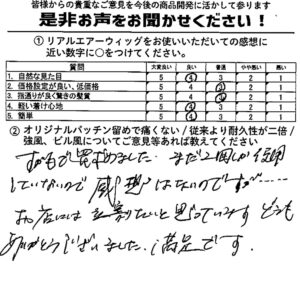 皆様からの貴重なご意見を今後の商品開発に活かして参ります
是非お声をお聞かせください！
① リアルエアーウィッグをお使いいただいての感想に
近い数字に○をつけてください。
質問 大変良い 良い 普通 やや悪い 悪い
1. 自然な見た目 5 4 3 2 1
2. 価格設定が良い、低価格 5 4 3 2 1
3. 指通りが良く驚きの髪質 5 4 3 2 1
4. 軽い着け心地 5 4 3 2 1
5. 簡単 5 4 3 2 1
② オリジナルパッチン留めで痛くない / 従来より耐久性が二倍 /
強風、ビル風についてご意見等あれば教えてください
買いました まだ二回しか使用
していないので感想はないのですが……
お店には と思っています どうも
ありがとうございました。満足です。